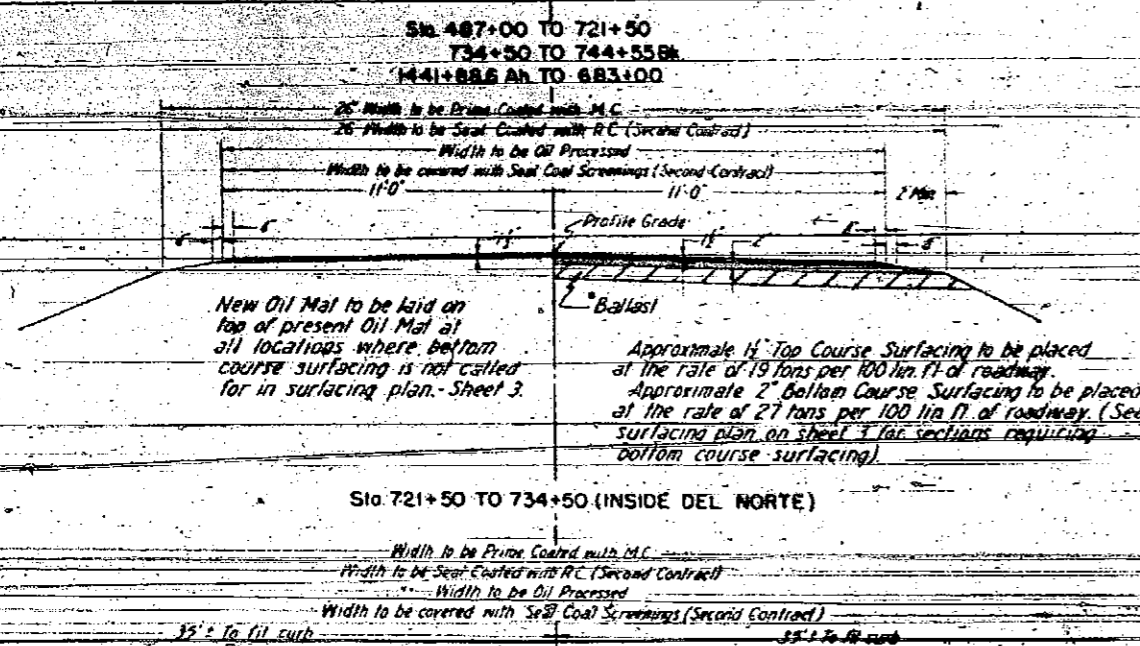 Sta. 487+00 TO 721+50
734+50 TO 744+55 Bk
1441+88.6 Ah TO 683+00
26' Width to be Prime Coated with M.C.
26' Width to be Seal Coated with RC (Second Contract)
Width to be Oil Processed
Width to be covered with Seal Coat Screenings (Second Contract)
11'-0" 11'-0" 2' Min.
Profile Grade
6" 6" 1½" 1½" 2" 6"
Ballast
New Oil Mat to be laid on
top of present Oil Mat at
all locations where bottom
course surfacing is not called
for in surfacing plan.- Sheet 3.
Approximate 1½" Top Course Surfacing to be placed
at the rate of 19 tons per 100 lin. ft. of roadway.
Approximate 2" Bottom Course Surfacing to be placed
at the rate of 27 tons per 100 lin ft. of roadway. (See
surfacing plan on sheet 3 for sections requiring
bottom course surfacing).
Sta. 721+50 TO 734+50 (INSIDE DEL NORTE)
Width to be Prime Coated with M.C.
Width to be Seal Coated with RC (Second Contract)
Width to be Oil Processed
Width to be covered with Seal Coat Screenings (Second Contract)
35' ± To fit curb 35' ± To fit curb